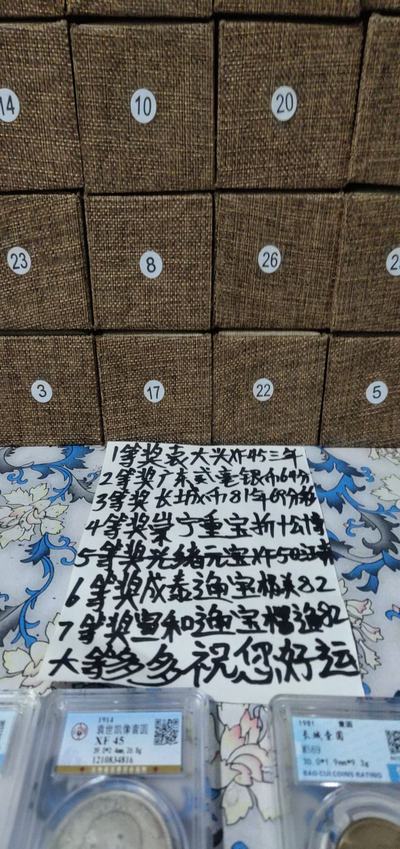 14
10
20
23
8
26
3
17
22
5
1等奖袁大头XF45三年
2等奖广东贰毫银币64分
3等奖长城币81年69分
4等奖崇宁重宝折十公博
5等奖光绪元宝XF50
6等奖咸泰通宝极美82
7等奖宣和通宝 82
大等多多祝您好运
1914
袁世凯像壹圆
XF 45
1210834816
1981 壹圆
长城壹圆
MS69
30.0*1.9mm*9.3g
BAO CUI COINS RATING